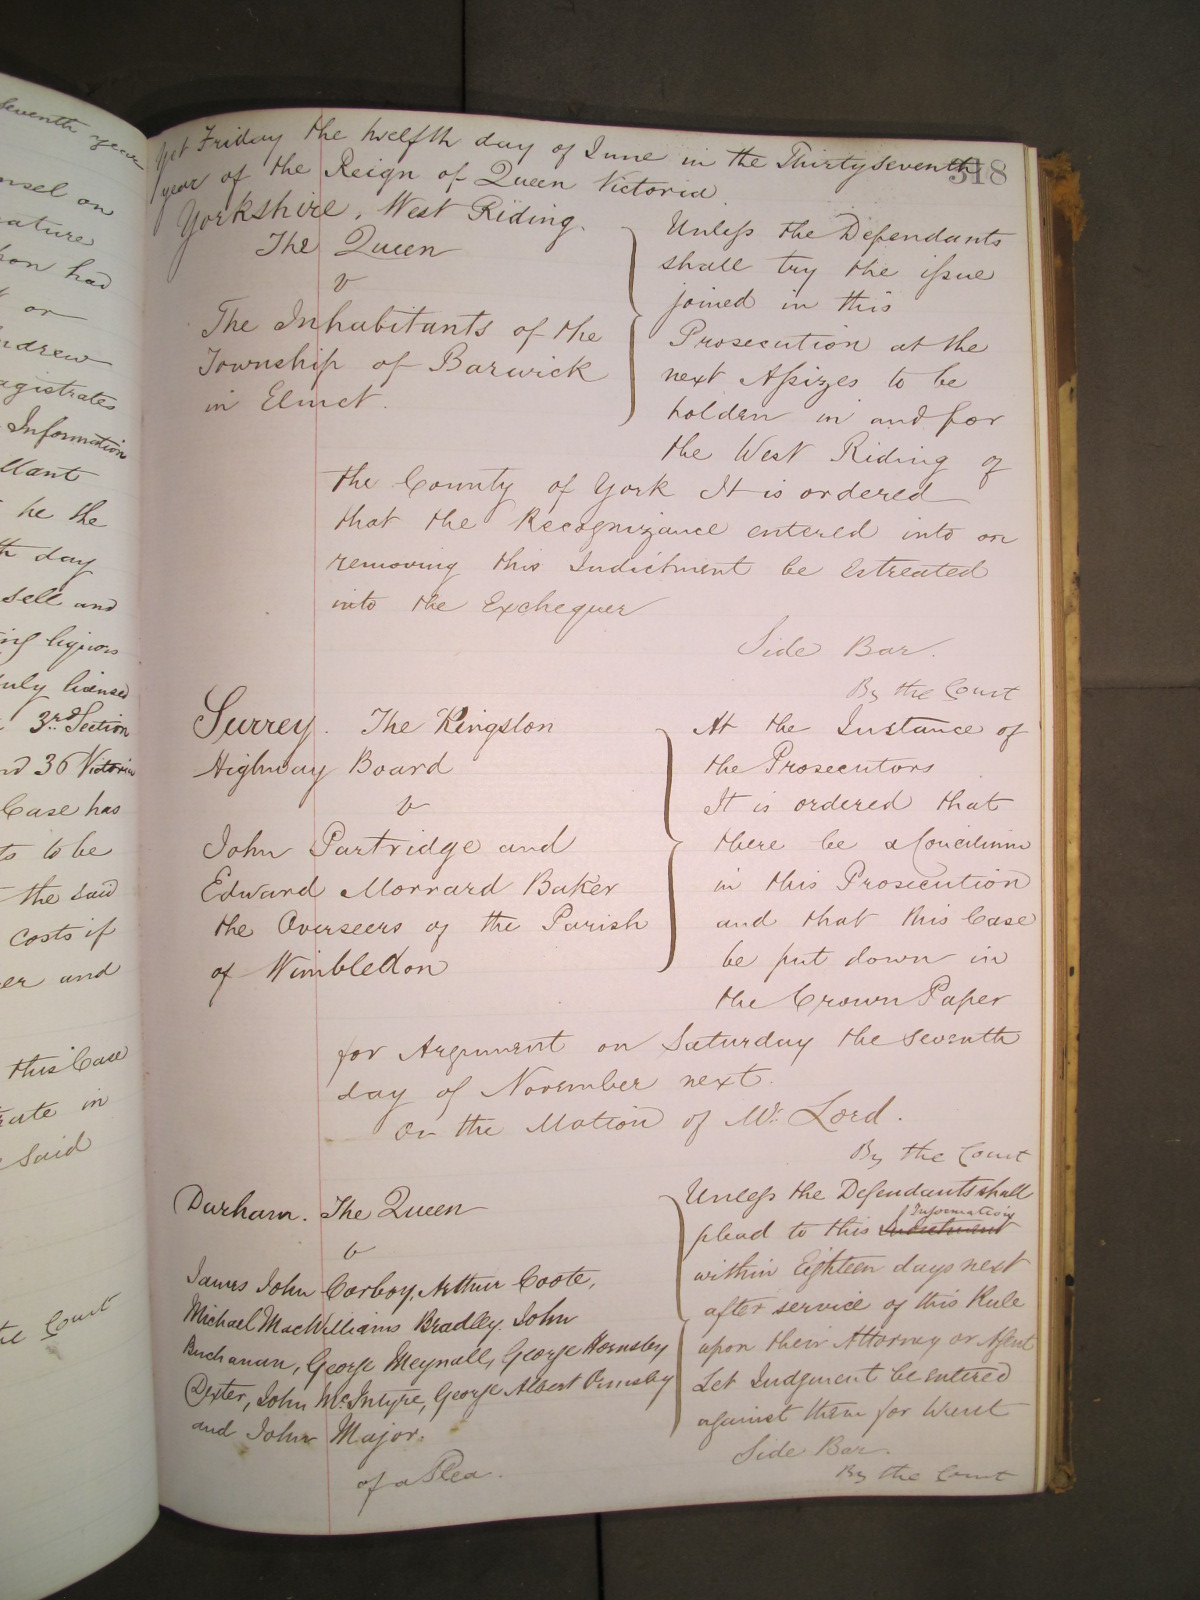 seventh year
nsel on
nature
pon had
or
ndrew
agistrates
Information
llant
he the
th day
sell and
ing liquors
uly licensed
3rd Section
nd 36 Victoria
Case has
ts to be
the said
costs if
er and
this Case
rate in
said
Court
318
Yet Friday the twelfth day of June in the Thirty seventh
year of the Reign of Queen Victoria
Yorkshire, West Riding.
The Queen
v
The Inhabitants of the
Township of Barwick
in Elmet.
Unless the Defendants
shall try the issue
joined in this
Prosecution at the
next Assizes to be
holden in and for
the West Riding of
the County of York It is ordered
that the Recognizance entered into on
removing this Indictment be Estreated
into the Exchequer
Side Bar.
By the Court
Surrey. The Kingston
Highway Board
v
John Partridge and
Edward Morrard Baker
the Overseers of the Parish
of Wimbledon
At the Instance of
the Prosecutors
It is ordered that
there be a Concilium
in this Prosecution
and that this Case
be put down in
the Crown Paper
for Argument on Saturday the seventh
day of November next.
On the Motion of Mr. Lord.
By the Court
Durham. The Queen
v
James John Corboy, Arthur Coote,
Michael MacWilliams Bradley. John
Buchanan, George Meynall, George Hornsby
Dexter, John McIntyre, George Albert Ormsby
and John Major.
of a Plea.
Unless the Defendants shall
plead to this Indictment Information
within Eighteen days next
after service of this Rule
upon their Attorney or Agent
Let Judgment be entered
against them for want
Side Bar.
By the Court